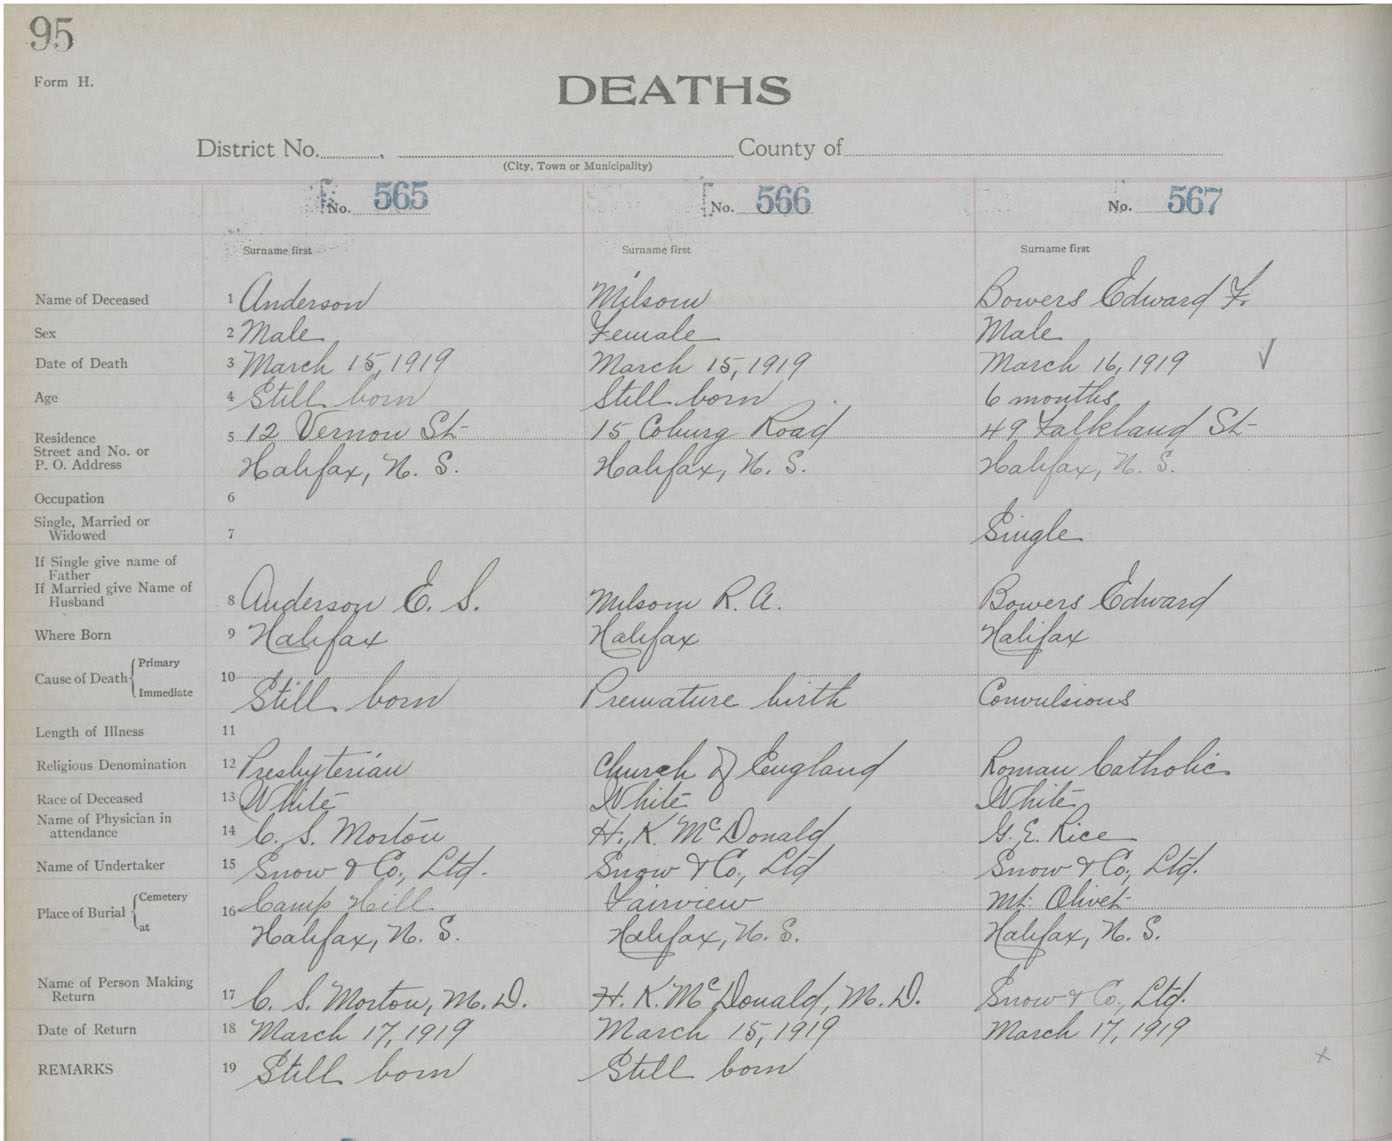 95
Form H.
DEATHS
District No. , County of
(City, Town or Municipality)
No. 565 No. 566 No. 567
Surname first Surname first Surname first
Name of Deceased 1 Anderson Milsom Bowers Edward F.
Sex 2 Male Female Male
Date of Death 3 March 15, 1919 March 15, 1919 March 16, 1919 √
Age 4 Still born Still born 6 months
Residence 5 12 Vernon St 15 Coburg Road 49 Falkland St
Street and No. or
P. O. Address Halifax, N. S. Halifax, N. S. Halifax, N. S.
Occupation 6
Single, Married or
Widowed 7 Single
If Single give name of
Father
If Married give Name of
Husband 8 Anderson E. S. Milsom R. A. Bowers Edward
Where Born 9 Halifax Halifax Halifax
Cause of Death Primary 10
Immediate Still born Premature birth Convulsions
Length of Illness 11
Religious Denomination 12 Presbyterian Church of England Roman Catholic
Race of Deceased 13 White White White
Name of Physician in
attendance 14 C. S. Morton H. K. McDonald G. E. Rice
Name of Undertaker 15 Snow & Co., Ltd. Snow & Co., Ltd Snow & Co., Ltd.
Place of Burial Cemetery 16 Camp Hill Fairview Mt. Olivet
at Halifax, N. S. Halifax, N. S. Halifax, N. S.
Name of Person Making
Return 17 C. S. Morton, M. D. H. K. McDonald, M. D. Snow & Co., Ltd.
Date of Return 18 March 17, 1919 March 15, 1919 March 17, 1919
REMARKS 19 Still born Still born x